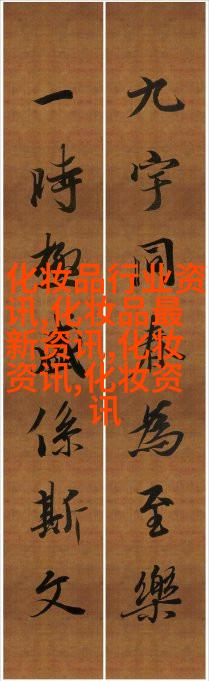 九宇同為至樂
一時盛係斯文
化妆品行业资
讯,化妆品最
新资讯,化妆
资讯,化妆资
讯